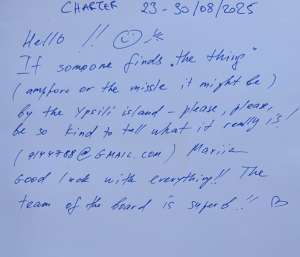 CHARTER 23 - 30/08/2025
Hello !! ☺
If someone finds „the thing"
(amfore or the missle it might be)
by the Ypsili island - please, please,
be so kind to tell what it really is!
(9144788@GMAIL.COM) Mariia
Good luck with everything!! The
team of the board is superb!!